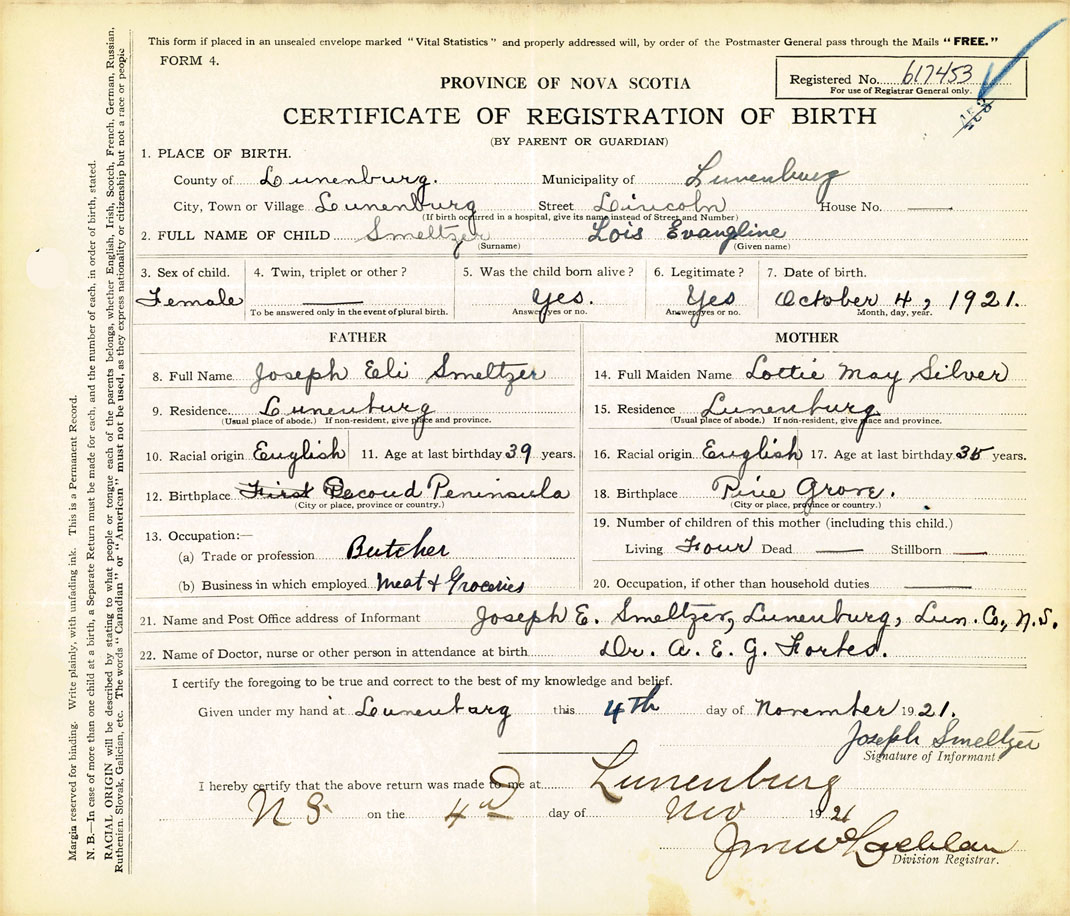 This form if placed in an unsealed envelope marked "Vital Statistics" and properly addressed will, by order of the Postmaster General pass through the Mails "FREE."
FORM 4.
Registered No. 617453
For use of Registrar General only.
PROVINCE OF NOVA SCOTIA
CERTIFICATE OF REGISTRATION OF BIRTH
(BY PARENT OR GUARDIAN)
1. PLACE OF BIRTH.
County of Lunenburg. Municipality of Lunenburg
City, Town or Village Lunenburg Street Lincoln House No. ——
(If birth occurred in a hospital, give its name instead of Street and Number)
2. FULL NAME OF CHILD Smeltzer Lois Evangline
(Surname) (Given name)
3. Sex of child. 4. Twin, triplet or other? 5. Was the child born alive? 6. Legitimate? 7. Date of birth.
Female —— Yes. Yes October 4, 1921.
To be answered only in the event of plural birth. Answer yes or no. Answer yes or no. Month, day, year.
FATHER
8. Full Name Joseph Eli Smeltzer
9. Residence Lunenburg
(Usual place of abode.) If non-resident, give place and province.
10. Racial origin English 11. Age at last birthday 39 years.
12. Birthplace First Second Peninsula
(City or place, province or country.)
13. Occupation:—
(a) Trade or profession Butcher
(b) Business in which employed Meat & Groceries
MOTHER
14. Full Maiden Name Lottie May Silver
15. Residence Lunenburg
(Usual place of abode.) If non-resident, give place and province.
16. Racial origin English 17. Age at last birthday 35 years.
18. Birthplace Pine Grove.
(City or place, province or country.)
19. Number of children of this mother (including this child.)
Living Four Dead —— Stillborn ——
20. Occupation, if other than household duties ——
21. Name and Post Office address of Informant Joseph E. Smeltzer, Lunenburg, Lun. Co, N.S.
22. Name of Doctor, nurse or other person in attendance at birth Dr. A. E. G. Forbes.
I certify the foregoing to be true and correct to the best of my knowledge and belief.
Given under my hand at Lunenburg this 4th day of November 1921.
Joseph Smeltzer
Signature of Informant
I hereby certify that the above return was made to me at Lunenburg
N S. on the 4th day of Nov 1921
Division Registrar.
Margin reserved for binding. Write plainly, with unfading ink. This is a Permanent Record.
N. B.—In case of more than one child at a birth, a Separate Return must be made for each, and the number of each, in order of birth, stated.
RACIAL ORIGIN will be described by stating to what people or tongue each of the parents belongs, whether English, Irish, Scotch, French, German, Russian,
Ruthenian, Slovak, Galician, etc. The words "Canadian" or "American" must not be used, as they express nationality or citizenship but not a race or people